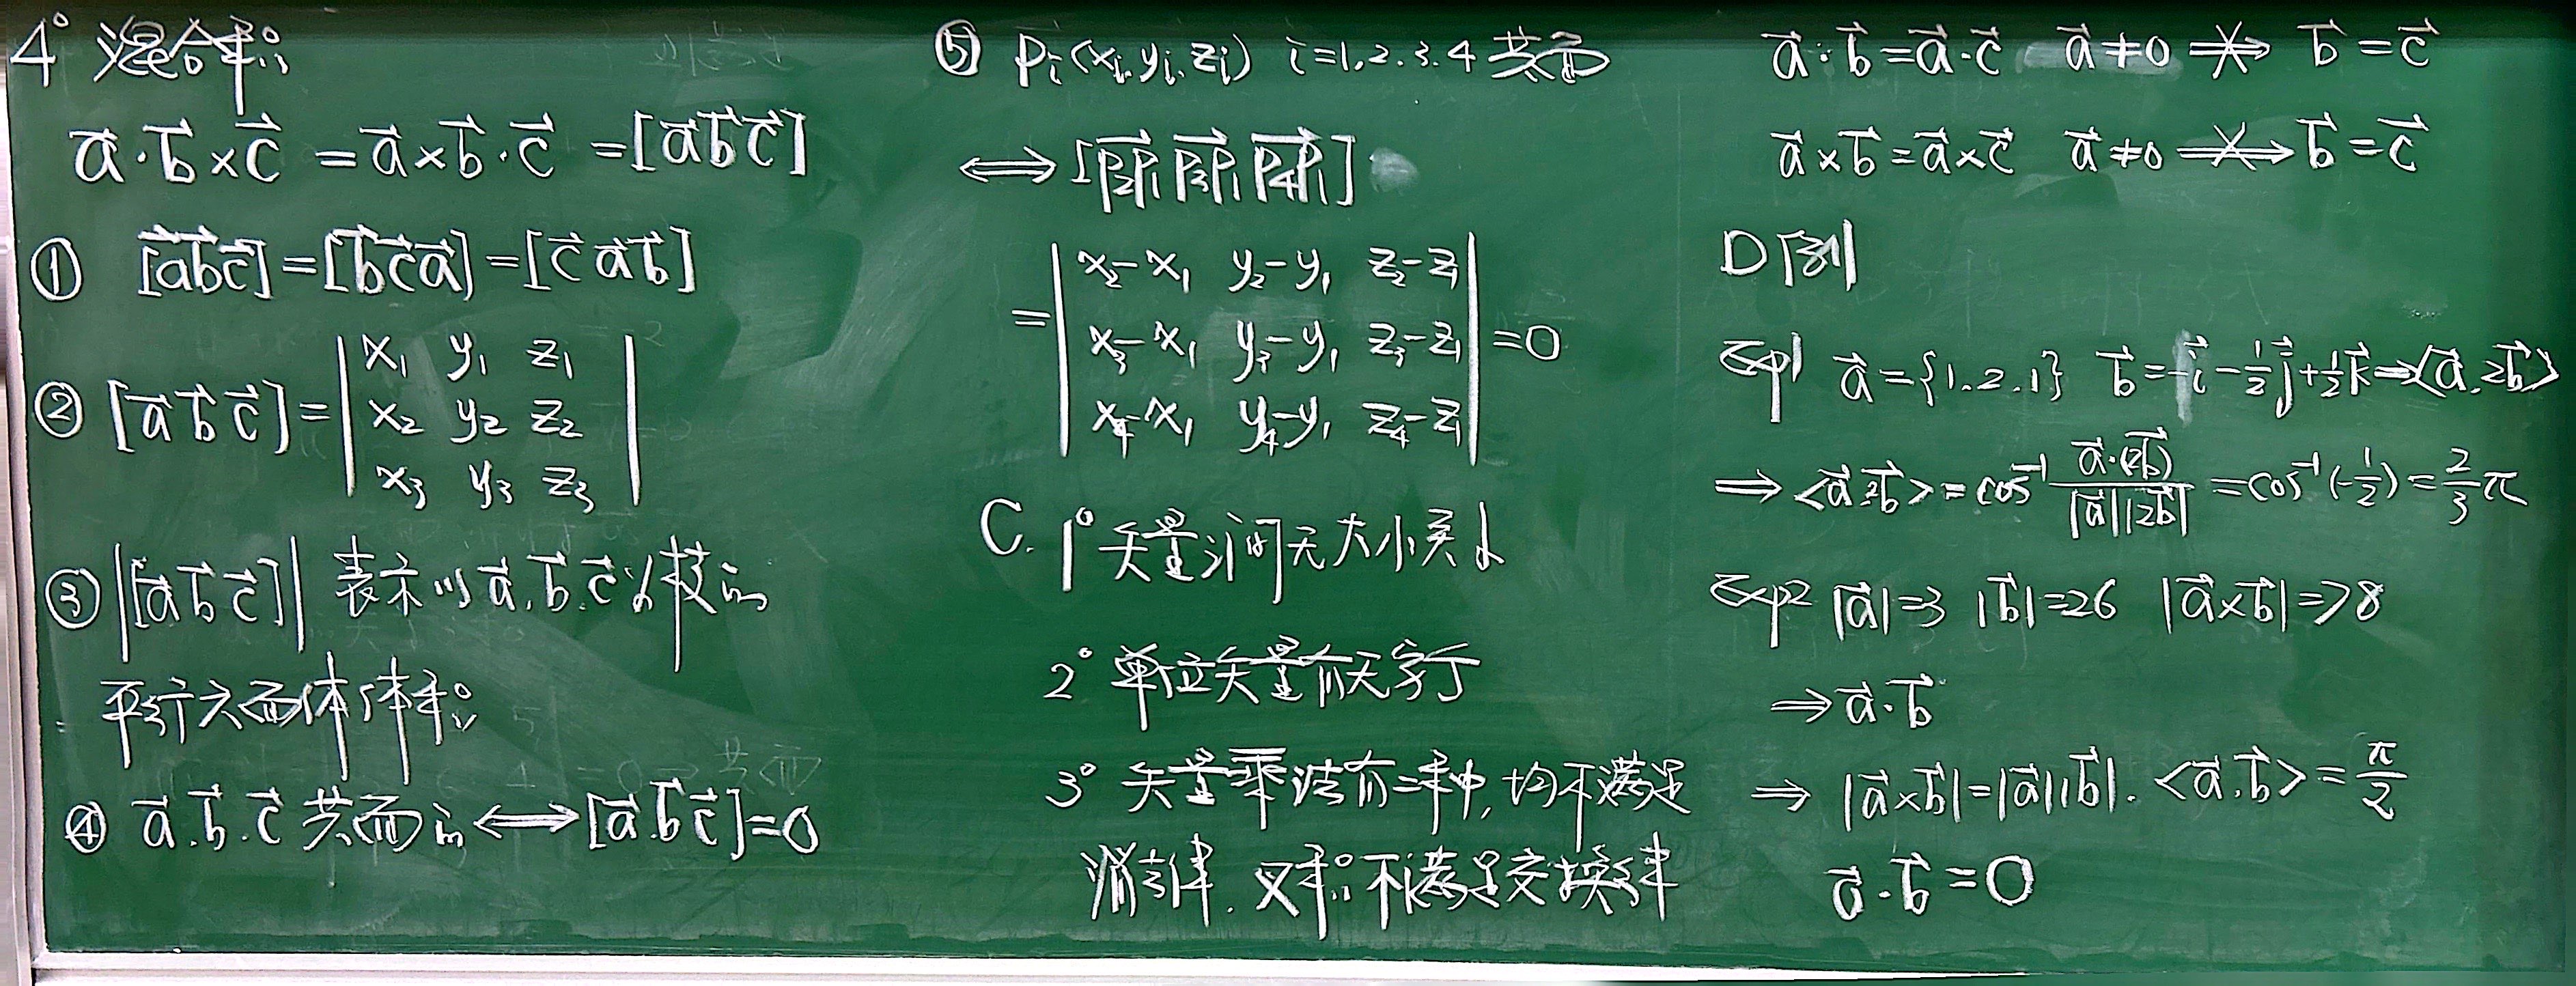 4° 混合积
a⃗·b⃗×c⃗ = a⃗×b⃗·c⃗ = [a⃗b⃗c⃗]
① [a⃗b⃗c⃗] = [b⃗c⃗a⃗] = [c⃗a⃗b⃗]
② [a⃗b⃗c⃗] = | x₁ y₁ z₁ |
| x₂ y₂ z₂ |
| x₃ y₃ z₃ |
③ |[a⃗b⃗c⃗]| 表示以a⃗.b⃗.c⃗为棱的
平行六面体体积
④ a⃗.b⃗.c⃗ 共面的 ⟺ [a⃗.b⃗c⃗]=0
⑤ Pᵢ(xᵢ.yᵢ.zᵢ) i=1.2.3.4 共面
⟺ [P₂P₁ P₃P₁ P₄P₁]
= | x₂-x₁ y₂-y₁ z₂-z₁ |
| x₃-x₁ y₃-y₁ z₃-z₁ | =0
| x₄-x₁ y₄-y₁ z₄-z₁ |
C. 1° 矢量间无大小关系
2° 单位矢量有无穷个
3° 矢量乘法有二种,均不满足
消去律.叉积不满足交换律
a⃗·b⃗=a⃗·c⃗ a⃗≠0 ⇏ b⃗=c⃗
a⃗×b⃗=a⃗×c⃗ a⃗≠0 ⇏ b⃗=c⃗
D 例
Exp1 a⃗={1.2.1} b⃗=-i⃗-½j⃗+½k⃗ ⇒ <a⃗.2b⃗>
⇒ <a⃗.2b⃗> = cos⁻¹ a⃗·(2b⃗)/|a⃗||2b⃗| = cos⁻¹(-½) = ⅔π
Exp2 |a⃗|=3 |b⃗|=26 |a⃗×b⃗|=78
⇒ a⃗·b⃗
⇒ |a⃗×b⃗|=|a⃗||b⃗|. <a⃗.b⃗>=π/2
a⃗·b⃗=0